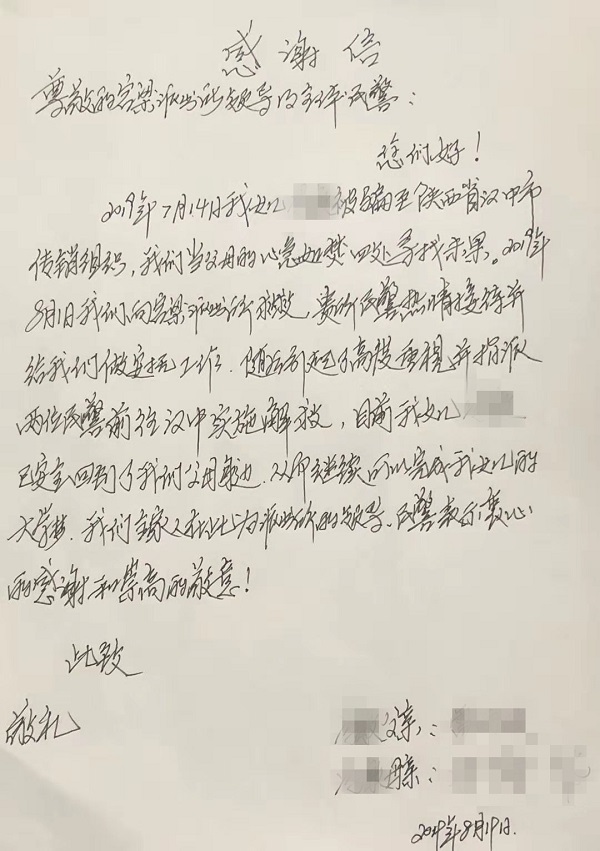 感谢信
尊敬的高梁派出所领导及全体民警：
您们好！
2019年7月14日我女儿 被骗至陕西省汉中市
传销组织，我们当父母的心急如焚四处寻找未果。2019年
8月1日我们向高梁派出所求救，贵所民警热情接待并
给我们做安抚工作，随后引起了高度重视，并指派
两位民警前往汉中实施解救，目前我女儿
已安全回到了我们父母身边，又即继续可以完成我女儿的
大学梦。我们全家人在此为派出所的领导、民警表示衷心
的感谢和崇高的敬意！
此致
敬礼
父亲：
母亲：
2019年8月19日.